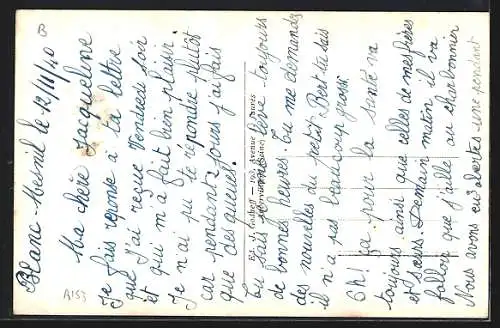 Blanc-Mesnil le 12/11/40
Ma chère Jaqueline
Je fais reponse à ta lettre
que j'ai reçue Vendredi soir
et qui m'à fait bien plaisir.
Je n'ai pu te répondre plutôt
car pendant 2 jours j'ai fais
que des queues.
Tu sais on arrive toujours
de bonnes heures. Tu me demandes
des nouvelles du petit Bert tu sais
il n'a pas beaucoup grossi.
Oh! ça pour la santé va
toujours ainsi que celles de mes frères
et sœurs. Demain matin il va
falloir que j'aille au charbonnier
Nous avons eu 3 alertes une pendant
A153
8